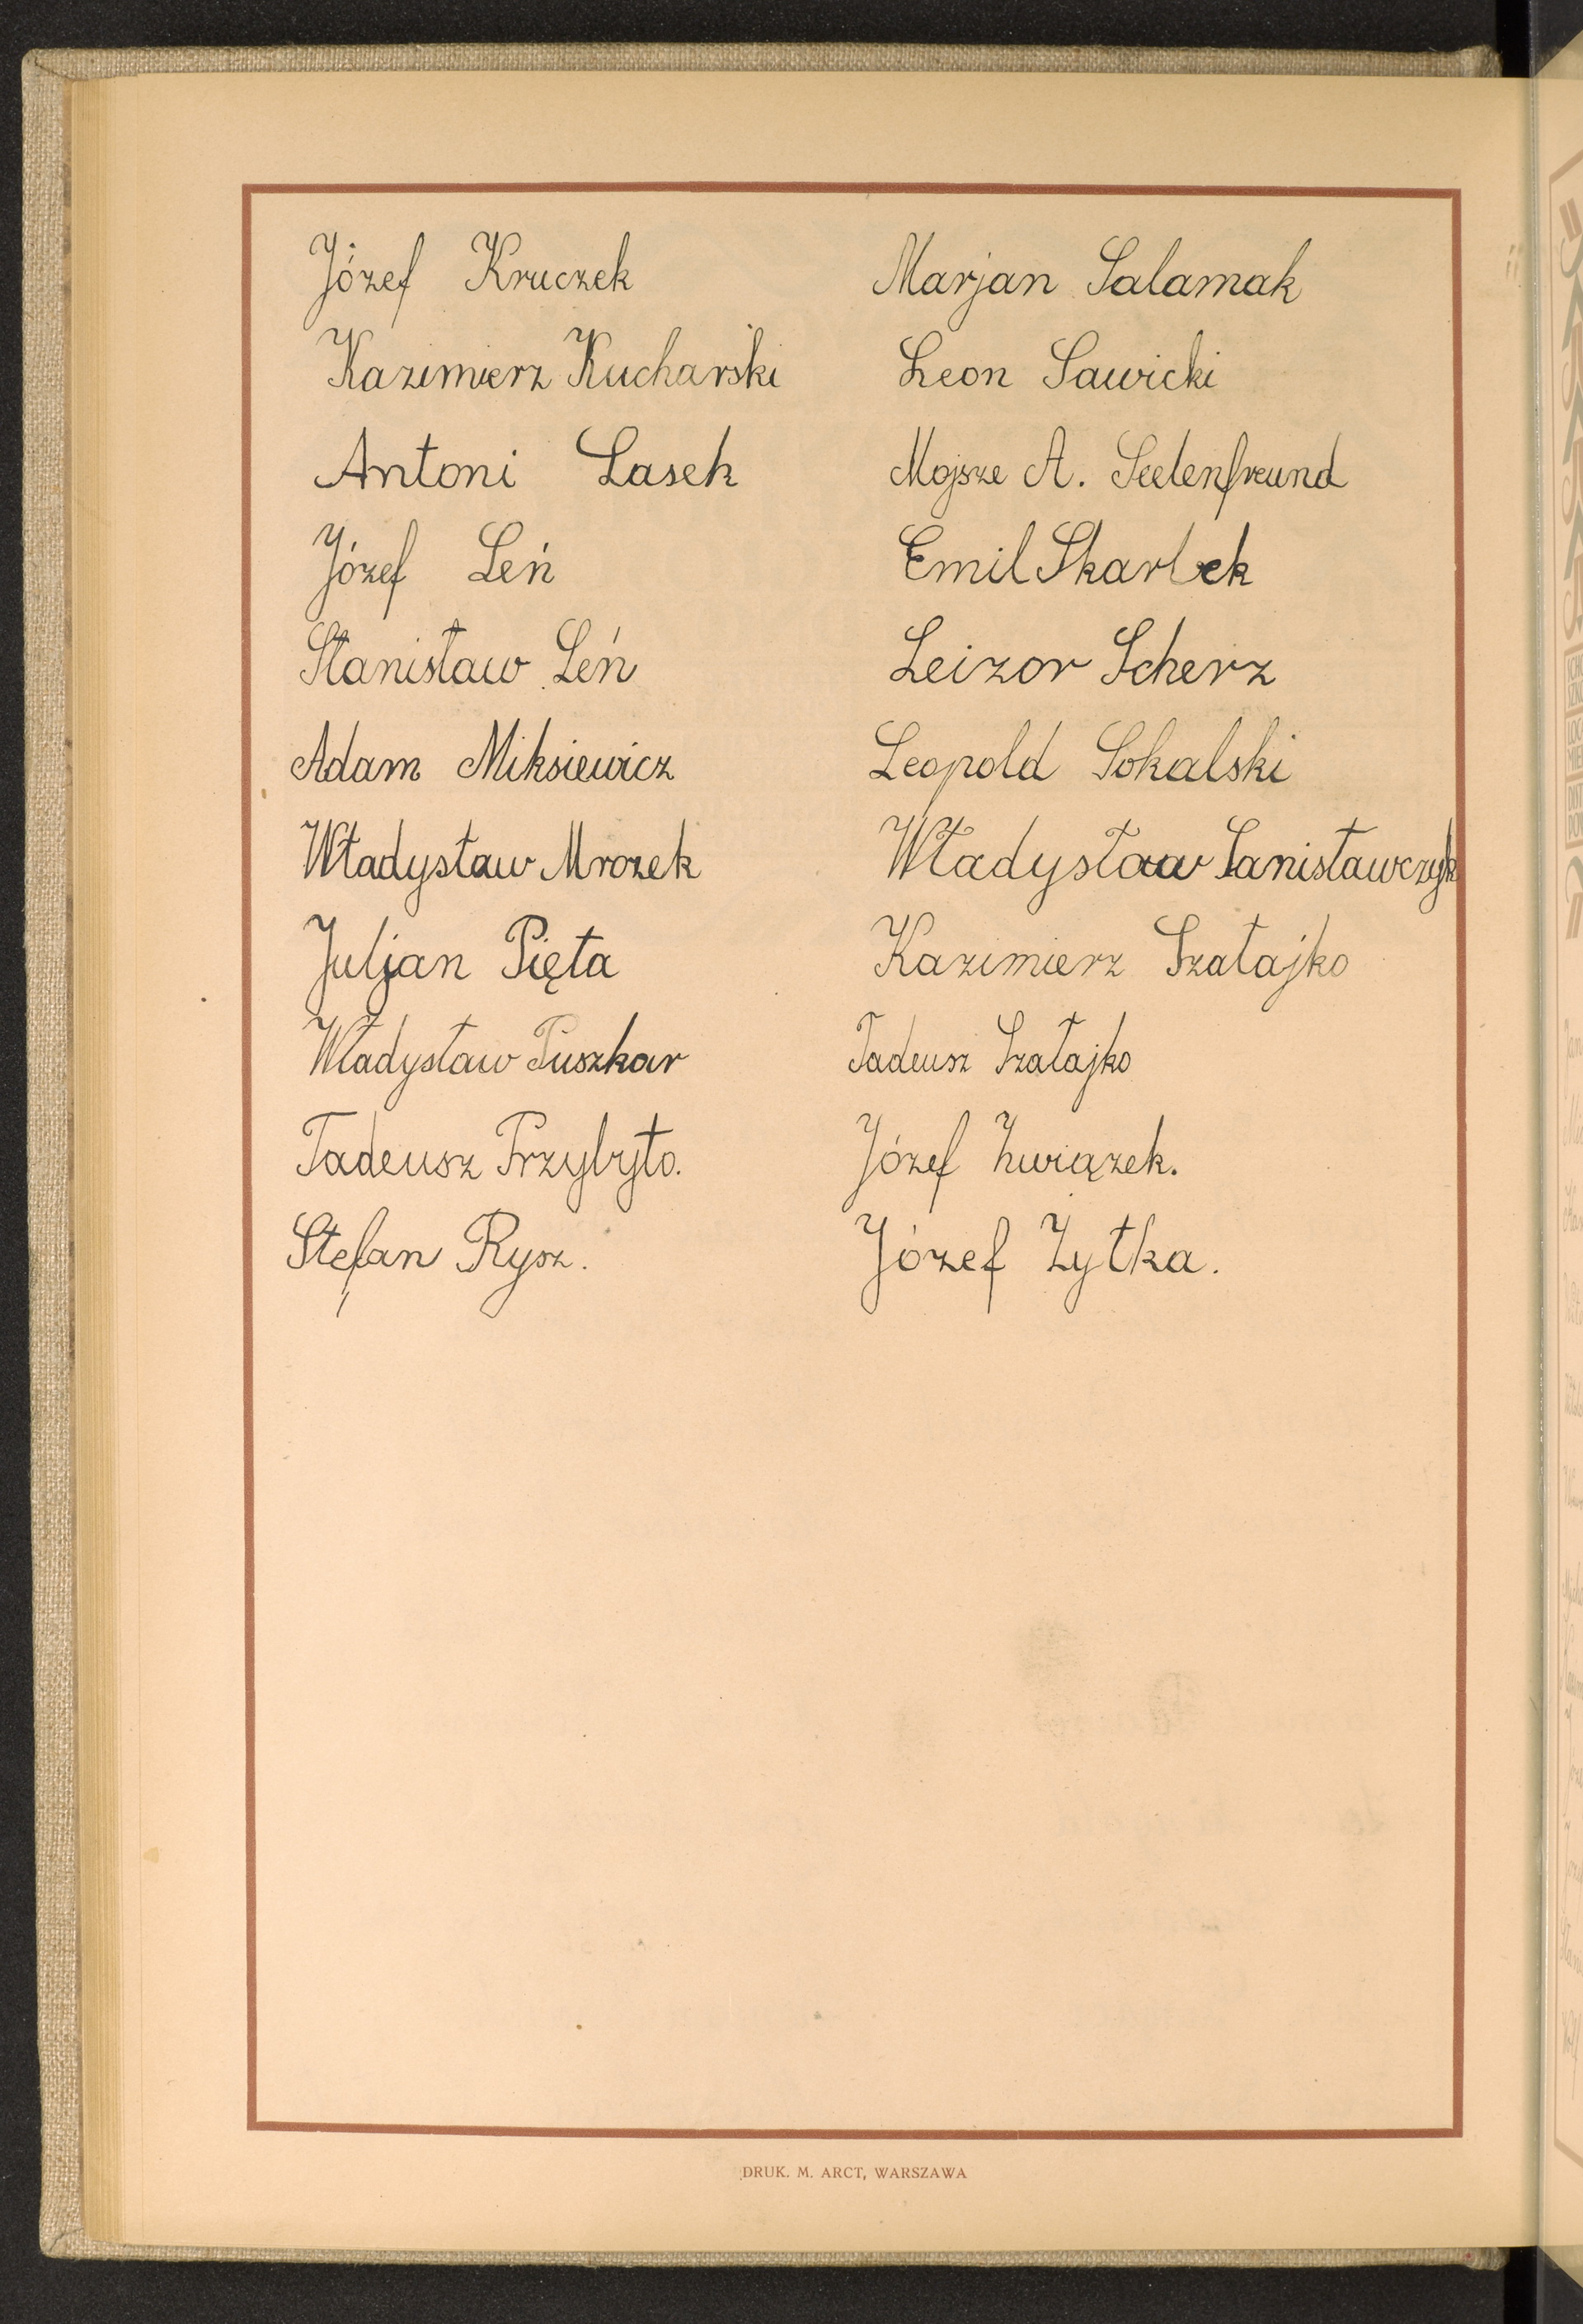 Józef Kruczek
Kazimierz Kucharski
Antoni Lasek
Józef Leń
Stanisław Leń
Adam Miksiewicz
Władysław Mrozek
Juljan Pięta
Władysław Puszkar
Tadeusz Przybyło.
Stefan Rysz.
Marjan Salamak
Leon Sawicki
Mojsze A. Seelenfreund
Emil Skarbek
Leizor Scherz
Leopold Sokalski
Władysław Sanisławczyk
Kazimierz Szałajko
Tadeusz Szałajko
Józef Związek.
Józef Żytka.
DRUK. M. ARCT, WARSZAWA